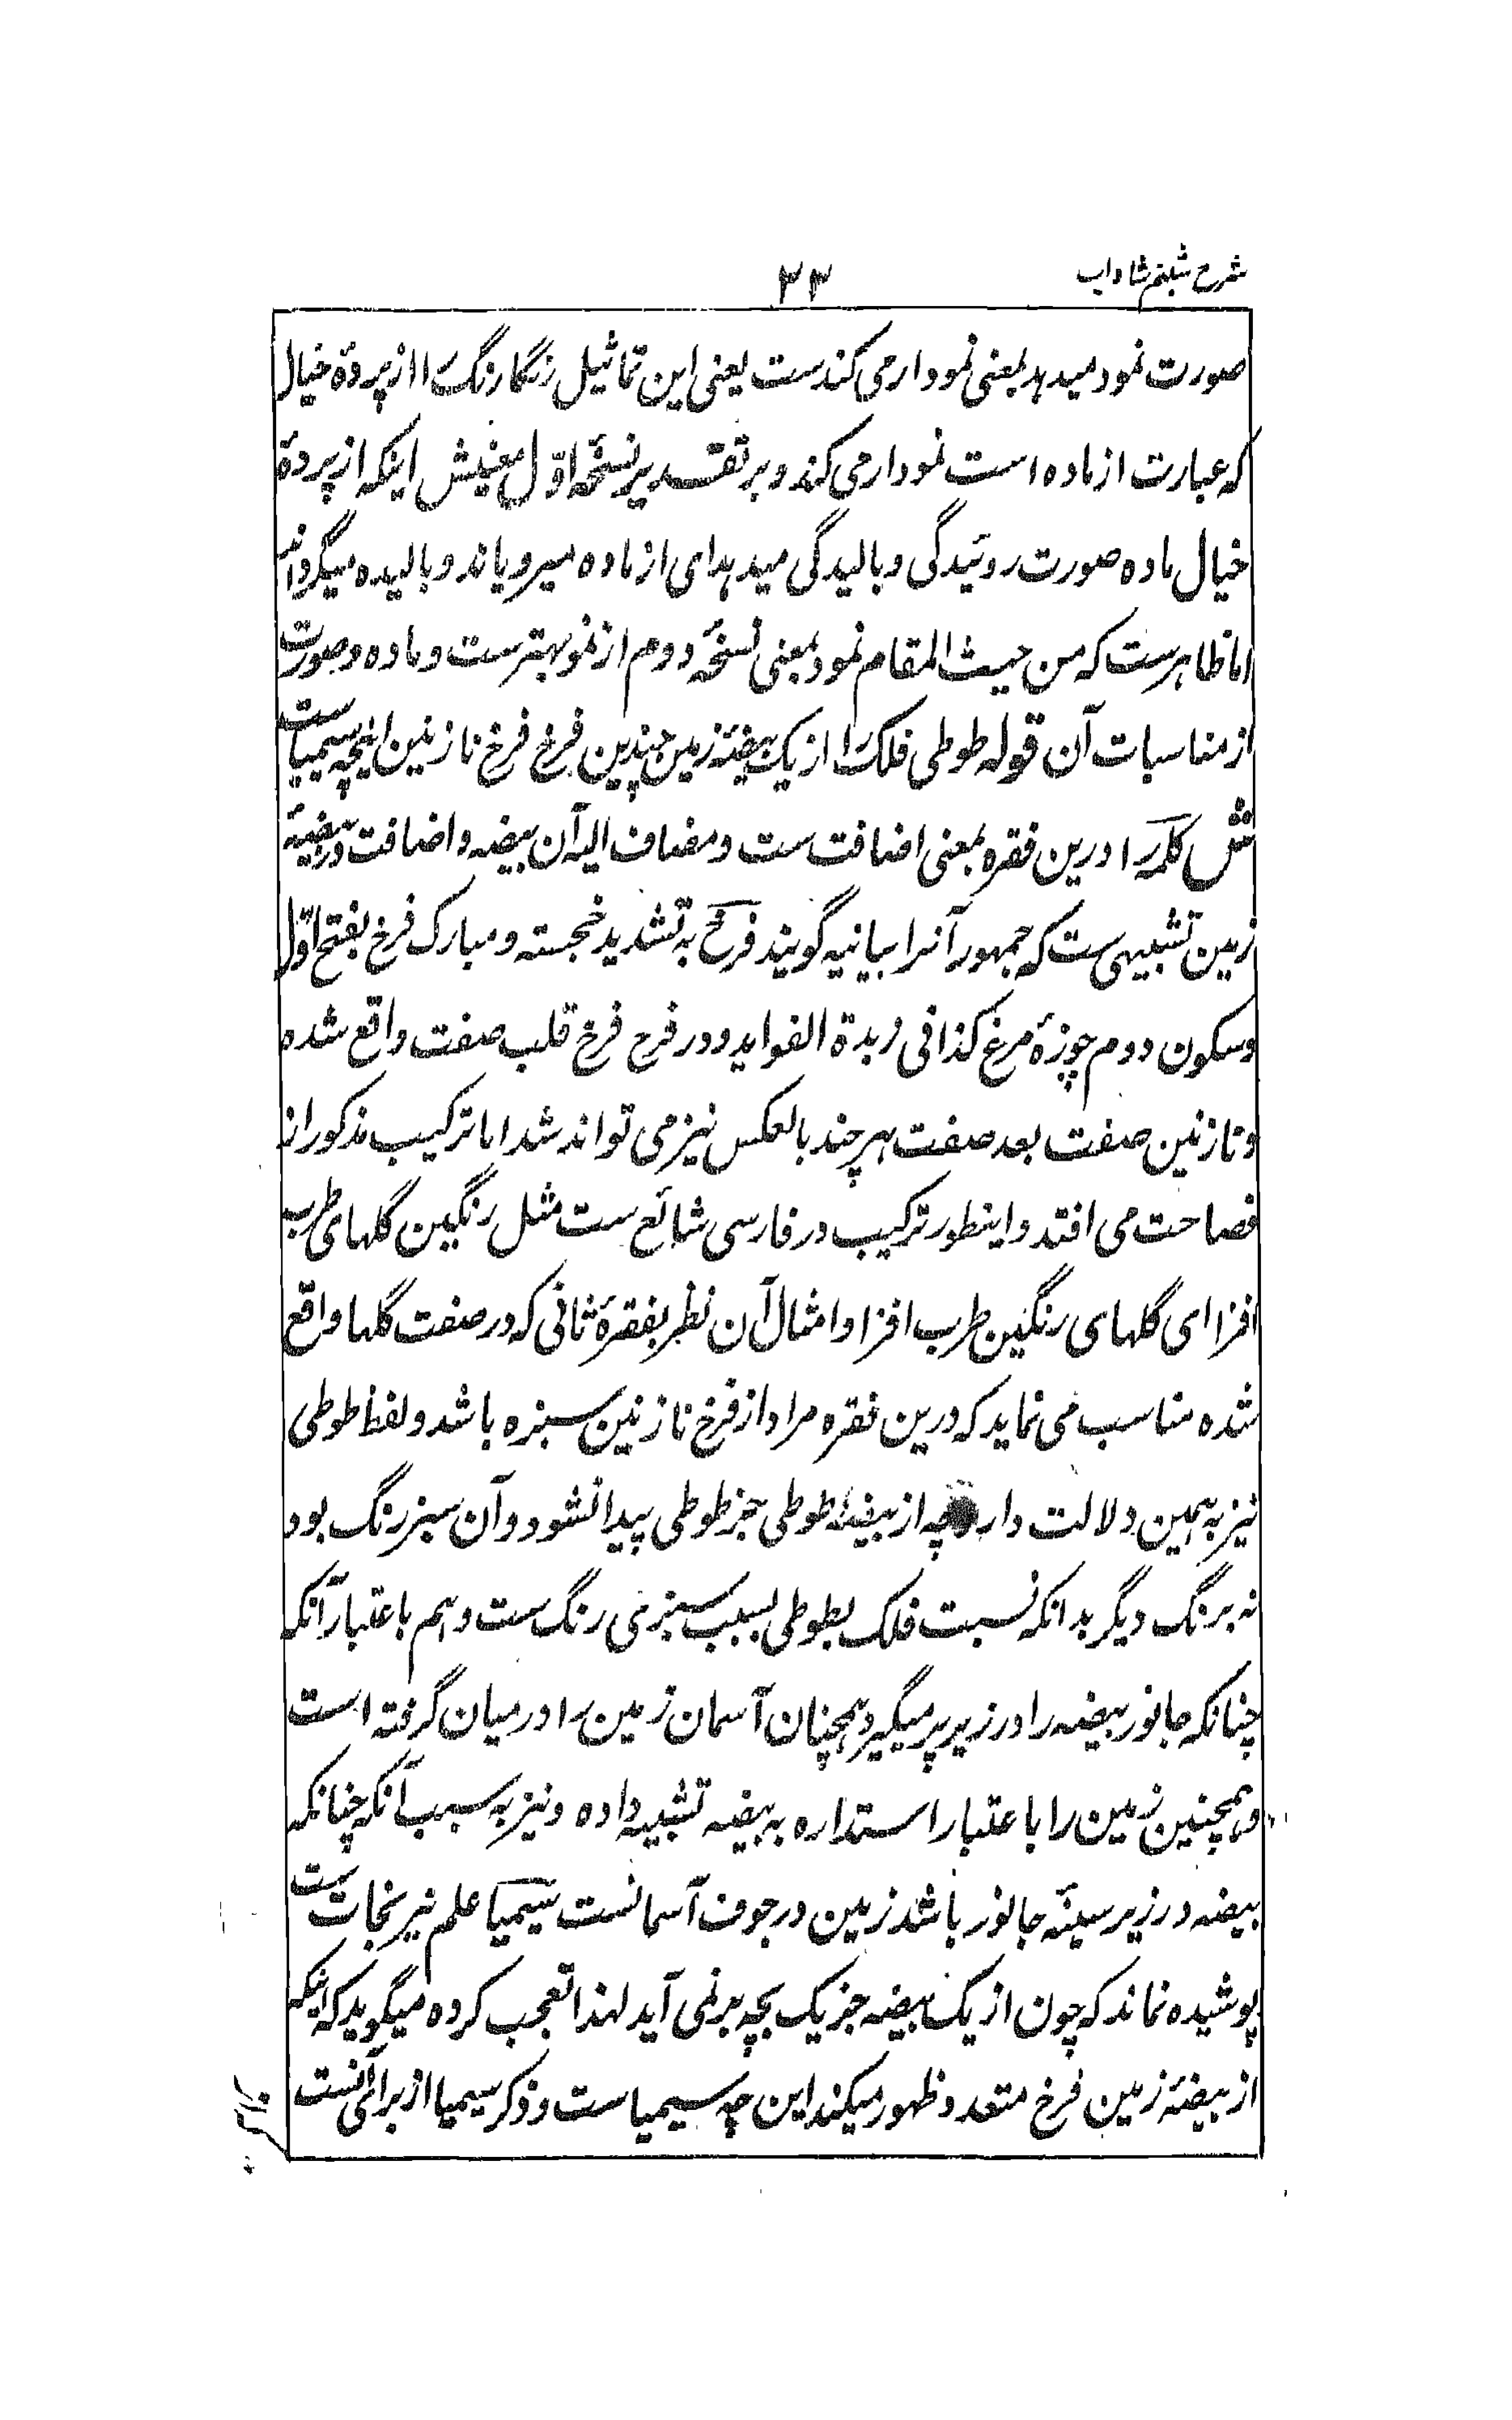 شرح شبنم شاداب
۲۳
صورت نمود میدهد بمعنی نمودار می کندست یعنی این تماثیل رنگارنگ را از پردۀ خیال
که عبارت از ماده است نمودار می کند و بر تقدیر نسخۂ اوّل معنیش اینکه از پردۀ
خیال ماده صورت روئیدگی و بالیدگی میدهد ای از ماده میرویاند و بالیده میگرداند
اما ظاهرست که من حیث المقام نمود بمعنی نسخۂ دوم از نمو بهترست و ماده و صورت
از مناسبات آن قوله طوطی فلک را از یک بیضۂ زمین چندین فرخ فرخ نازنین اینچه سیمیاست
ش کلمۂ را درین فقره بمعنی اضافت ست و مضاف الیه آن بیضه و اضافت در بیضۂ
زمین تشبیهی ست که جمهور آنرا بیانیه گویند فرخ به تشدید خجسته و مبارک فرخ بفتح اوّل
و سکون دوم چوزۂ مرغ کذا فی زبدة الفواید و در فرخ فرخ قلب صفت واقع شده
و نازنین صفت بعد صفت هر چند بالعکس نیز می تواند شد اما ترکیب مذکور از
فصاحت می افتد و اینطور ترکیب در فارسی شائع ست مثل رنگین گلهای طرب
افزا ای گلهای رنگین طرب افزا و امثال آن نظر بفقرۂ ثانی که در صفت گلها واقع
شده مناسب می نماید که درین فقره مراد از فرخ نازنین سبزه باشد و لفظ طوطی
نیز به همین دلالت دارد چه از بیضۂ طوطی جز طوطی پیدا نشود و آن سبز رنگ بود
نه برنگ دیگر بدانکه نسبت فلک بطوطی بسبب سبزی رنگ ست و هم باعتبار آنکه
چنانکه جانور بیضه را در زیر پر میگیرد همچنان آسمان زمین را در میان گرفته است
و همچنین زمین را باعتبار استداره به بیضه تشبیه داده و نیز به سبب آنکه چنانکه
بیضه در زیر سینۂ جانور باشد زمین در جوف آسمانست سیمیا علم نیرنجات ست
پوشیده نماند که چون از یک بیضه جز یک بچه بر نمی آید لهذا تعجب کرده میگوید که اینکه
از بیضۂ زمین فرخ متعدد ظهور میکند این چه سیمیاست و ذکر سیمیا از برای آنست